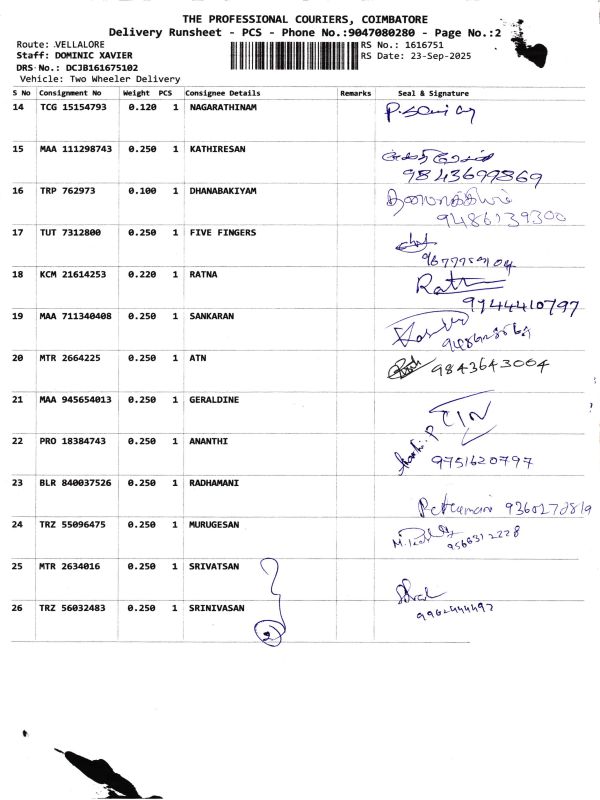 THE PROFESSIONAL COURIERS, COIMBATORE
Delivery Runsheet - PCS - Phone No.:9047080280 - Page No.:2
Route: VELLALORE
RS No.: 1616751
Staff: DOMINIC XAVIER
RS Date: 23-Sep-2025
DRS No.: DCJB161675102
Vehicle: Two Wheeler Delivery
S No Consignment No Weight PCS Consignee Details Remarks Seal & Signature
14 TCG 15154793 0.120 1 NAGARATHINAM
15 MAA 111298743 0.250 1 KATHIRESAN
9843699869
16 TRP 762973 0.100 1 DHANABAKIYAM
தனபாக்கியம்
9486139300
17 TUT 7312800 0.250 1 FIVE FINGERS
18 KCM 21614253 0.220 1 RATNA
Ratna
9944410797
19 MAA 711340408 0.250 1 SANKARAN
20 MTR 2664225 0.250 1 ATN
9843643004
21 MAA 945654013 0.250 1 GERALDINE
22 PRO 18384743 0.250 1 ANANTHI
9751620797
23 BLR 840037526 0.250 1 RADHAMANI
9360278819
24 TRZ 55096475 0.250 1 MURUGESAN
9566312228
25 MTR 2634016 0.250 1 SRIVATSAN
26 TRZ 56032483 0.250 1 SRINIVASAN
9962444492
2